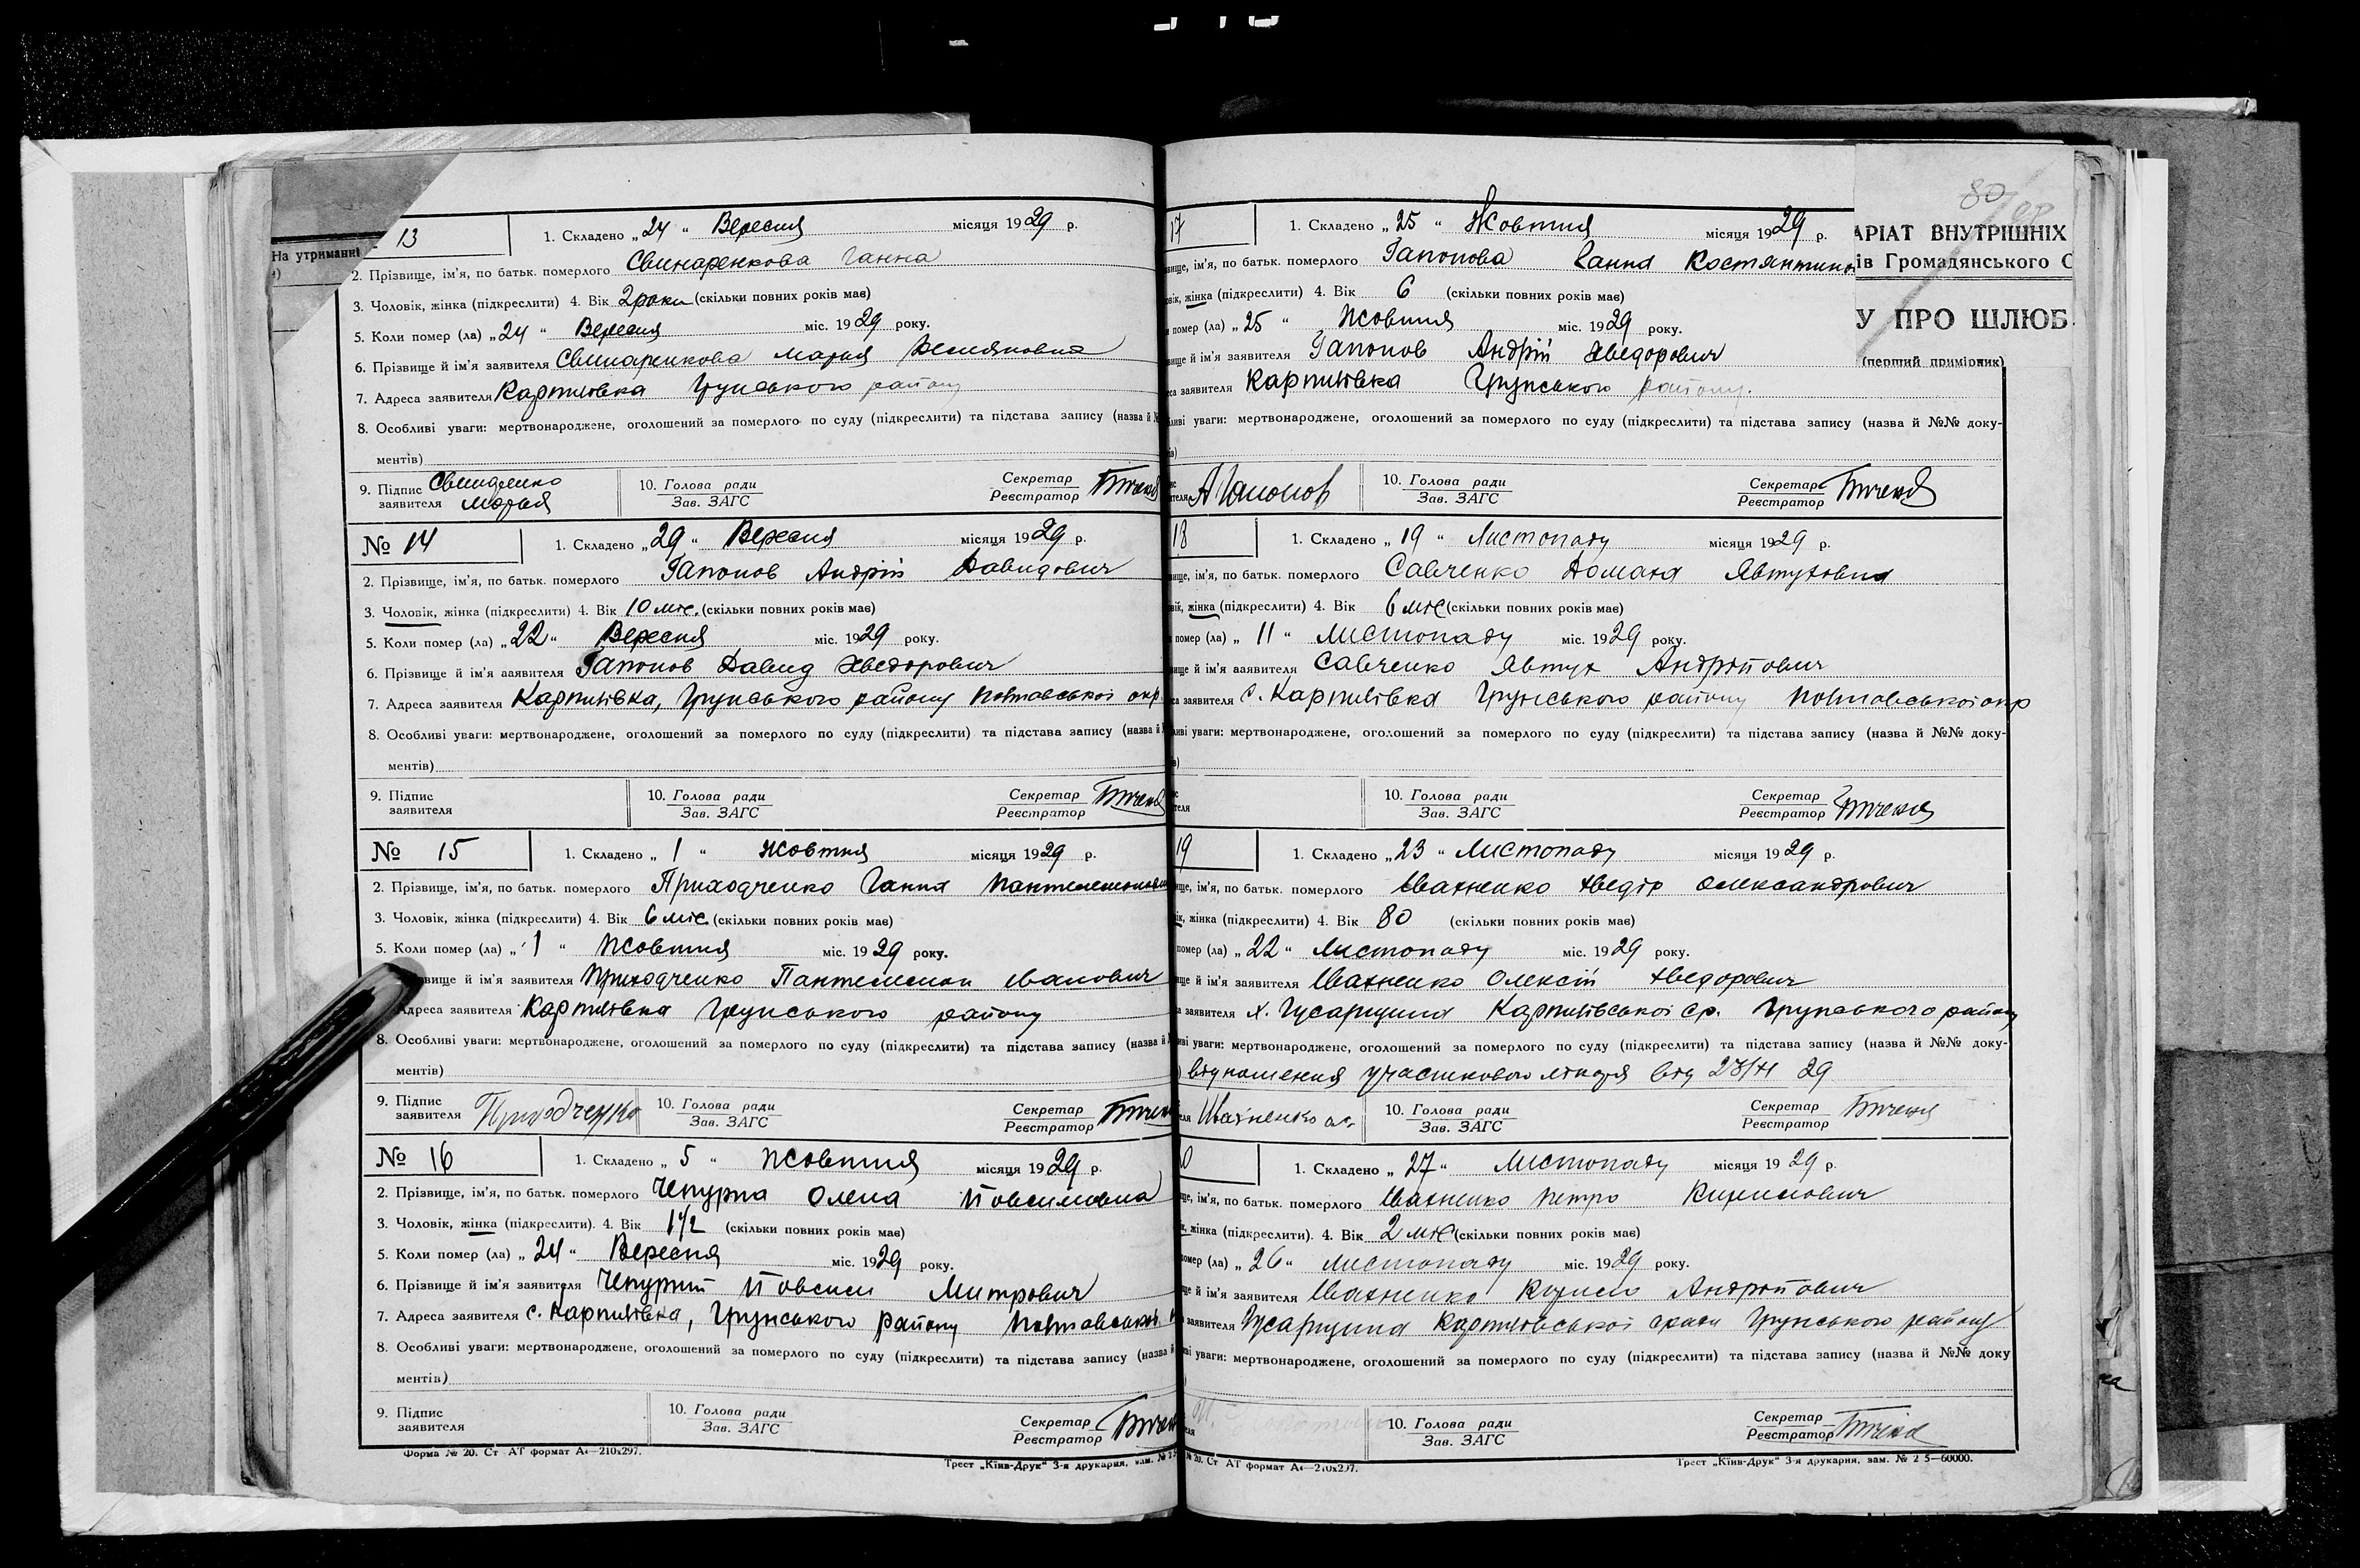 На утриманні
13
1. Складено „24“ Вересня місяця 1929 р.
2. Прізвище, ім'я, по батьк. померлого Свинаренкова Ганна
3. Чоловік, жінка (підкреслити) 4. Вік 2 роки (скільки повних років має)
5. Коли помер (ла) „24“ Вересня міс. 1929 року.
6. Прізвище й ім'я заявителя Свинаренкова Марія
7. Адреса заявителя Карпилівка Грунського району
8. Особливі уваги: мертвонароджене, оголошений за померлого по суду (підкреслити) та підстава запису (назва й
ментів)
9. Підпис заявителя Марія
10. Голова ради Зав. ЗАГС
Секретар Реєстратор
№ 14
1. Складено „29“ Вересня місяця 1929 р.
2. Прізвище, ім'я, по батьк. померлого Гапонов Андрій Давидович
3. Чоловік, жінка (підкреслити) 4. Вік 10 міс. (скільки повних років має)
5. Коли помер (ла) „22“ Вересня міс. 1929 року.
6. Прізвище й ім'я заявителя Гапонов Давид Хведорович
7. Адреса заявителя Карпилівка, Грунського району Полтавської окр.
8. Особливі уваги: мертвонароджене, оголошений за померлого по суду (підкреслити) та підстава запису (назва й
ментів)
9. Підпис заявителя
10. Голова ради Зав. ЗАГС
Секретар Реєстратор
№ 15
1. Складено „1“ Жовтня місяця 1929 р.
2. Прізвище, ім'я, по батьк. померлого Приходченко Ганна
3. Чоловік, жінка (підкреслити) 4. Вік 6 міс (скільки повних років має)
5. Коли помер (ла) „1“ Жовтня міс. 1929 року.
вище й ім'я заявителя Приходченко Пантелемон Іванович
Адреса заявителя Карпилівка Грунського району
8. Особливі уваги: мертвонароджене, оголошений за померлого по суду (підкреслити) та підстава запису (назва й
ментів)
9. Підпис заявителя Приходченко
10. Голова ради Зав. ЗАГС
Секретар Реєстратор
№ 16
1. Складено „5“ Жовтня місяця 1929 р.
2. Прізвище, ім'я, по батьк. померлого Чепурна Олена Йовсимовна
3. Чоловік, жінка (підкреслити). 4. Вік 1 1/2 (скільки повних років має)
5. Коли помер (ла) „24“ Вересня міс. 1929 року.
6. Прізвище й ім'я заявителя Чепурний Йовсим Митрович
7. Адреса заявителя с. Карпилівка, Грунського району Полтавської
8. Особливі уваги: мертвонароджене, оголошений за померлого по суду (підкреслити) та підстава запису (назва й
ментів)
9. Підпис заявителя
10. Голова ради Зав. ЗАГС
Секретар Реєстратор
Форма № 20. Ст АТ формат А4—210х297.
Трест „Київ-Друк“ 3-я друкарня, зам. №
80
АРІАТ ВНУТРІШНІХ
ів Громадянського С
У ПРО ШЛЮБ
(перший примірник)
17
1. Складено „25“ Жовтня місяця 1929 р.
вище, ім'я, по батьк. померлого Гапонова Ганна Костянтинов
овік, жінка (підкреслити) 4. Вік 6 (скільки повних років має)
помер (ла) „25“ Жовтня міс. 1929 року.
вище й ім'я заявителя Гапонов Андрій Хведорович
са заявителя Карпилівка Грунського району.
ливі уваги: мертвонароджене, оголошений за померлого по суду (підкреслити) та підстава запису (назва й №№ доку-
ів)
А Гапонов
10. Голова ради Зав. ЗАГС
Секретар Реєстратор
18
1. Складено „19“ Листопаду місяця 1929 р.
вище, ім'я, по батьк. померлого Савченко Домаха Явтуховна
овік, жінка (підкреслити) 4. Вік 6 міс (скільки повних років має)
помер (ла) „11“ Листопаду міс. 1929 року.
вище й ім'я заявителя Савченко Явтух Андрійович
са заявителя с. Карпилівка Грунського району Полтавської окр
ливі уваги: мертвонароджене, оголошений за померлого по суду (підкреслити) та підстава запису (назва й №№ доку-
в)
10. Голова ради Зав. ЗАГС
Секретар Реєстратор
19
1. Складено „23“ Листопаду місяця 1929 р.
ище, ім'я, по батьк. померлого Івахненко Хведір Олександрович
ік, жінка (підкреслити) 4. Вік 80 (скільки повних років має)
помер (ла) „22“ Листопаду міс. 1929 року.
ище й ім'я заявителя Івахненко Олексій Хведорович
а заявителя х. Гусарщина Карпилівської с.р. Грунського району
иві уваги: мертвонароджене, оголошений за померлого по суду (підкреслити) та підстава запису (назва й №№ доку-
відношення участкового лікаря від 23/XI 29
Івахненко
10. Голова ради Зав. ЗАГС
Секретар Реєстратор
0
1. Складено „27“ Листопаду місяця 1929 р.
ще, ім'я, по батьк. померлого Івахненко Петро Кирилович
к, жінка (підкреслити). 4. Вік 2 міс (скільки повних років має)
омер (ла) „26“ Листопаду міс. 1929 року.
ще й ім'я заявителя Івахненко Кирило Андрійович
заявителя Гусарщина Карпилівської с ради Грунського району
ві уваги: мертвонароджене, оголошений за померлого по суду (підкреслити) та підстава запису (назва й №№ доку
10. Голова ради Зав. ЗАГС
Секретар Реєстратор
№ 20. Ст АТ формат А4—210х297.
Трест „Київ-Друк“ 3-я друкарня, зам. № 2 5—60000.